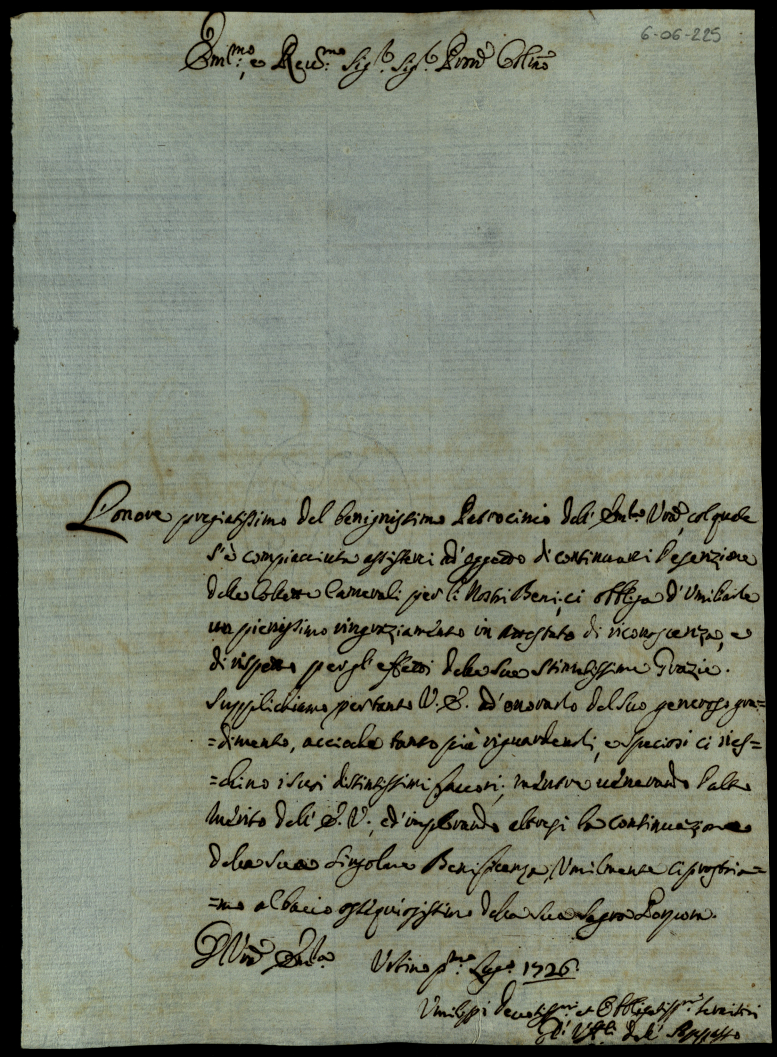 6-06-225
Em.mo, e Rev.mo Sig.r Sig.r Pron Col.mo
L'onore pregiatissimo del benignissimo Patrocinio dell' Em.za Vra, col quale
s'è compiacciuta assisterci ad' oggetto di continuarci l'esenzione
delle Collette Camerali per li Nostri Beni, ci obbliga d' Umiliarle
un pienissimo ringraziamento in attestato di riconoscenza, e
di rispetto per gl' effetti delle sue Stimatissime Grazie.
Supplichiamo per tanto V. E. ad' onorarlo del suo generoso gra=
=dimento, acciochè tanto più riguardevoli, e speciosi ci ries=
=chino i suoi distintissimi favori; mentre venerando l'alto
Merito dell' E. V., ed' implorando altresì la continuazione
della sua Singolare Beneficenza, Umilmente ci prostria=
=mo al bacio ossequiosissimo della sua Sagra Porpora.
D Vra Em.za Urbino p.mo Lug.o 1726.
Umiliss.i Devotiss.mi et Obbligatiss.mi Servitori